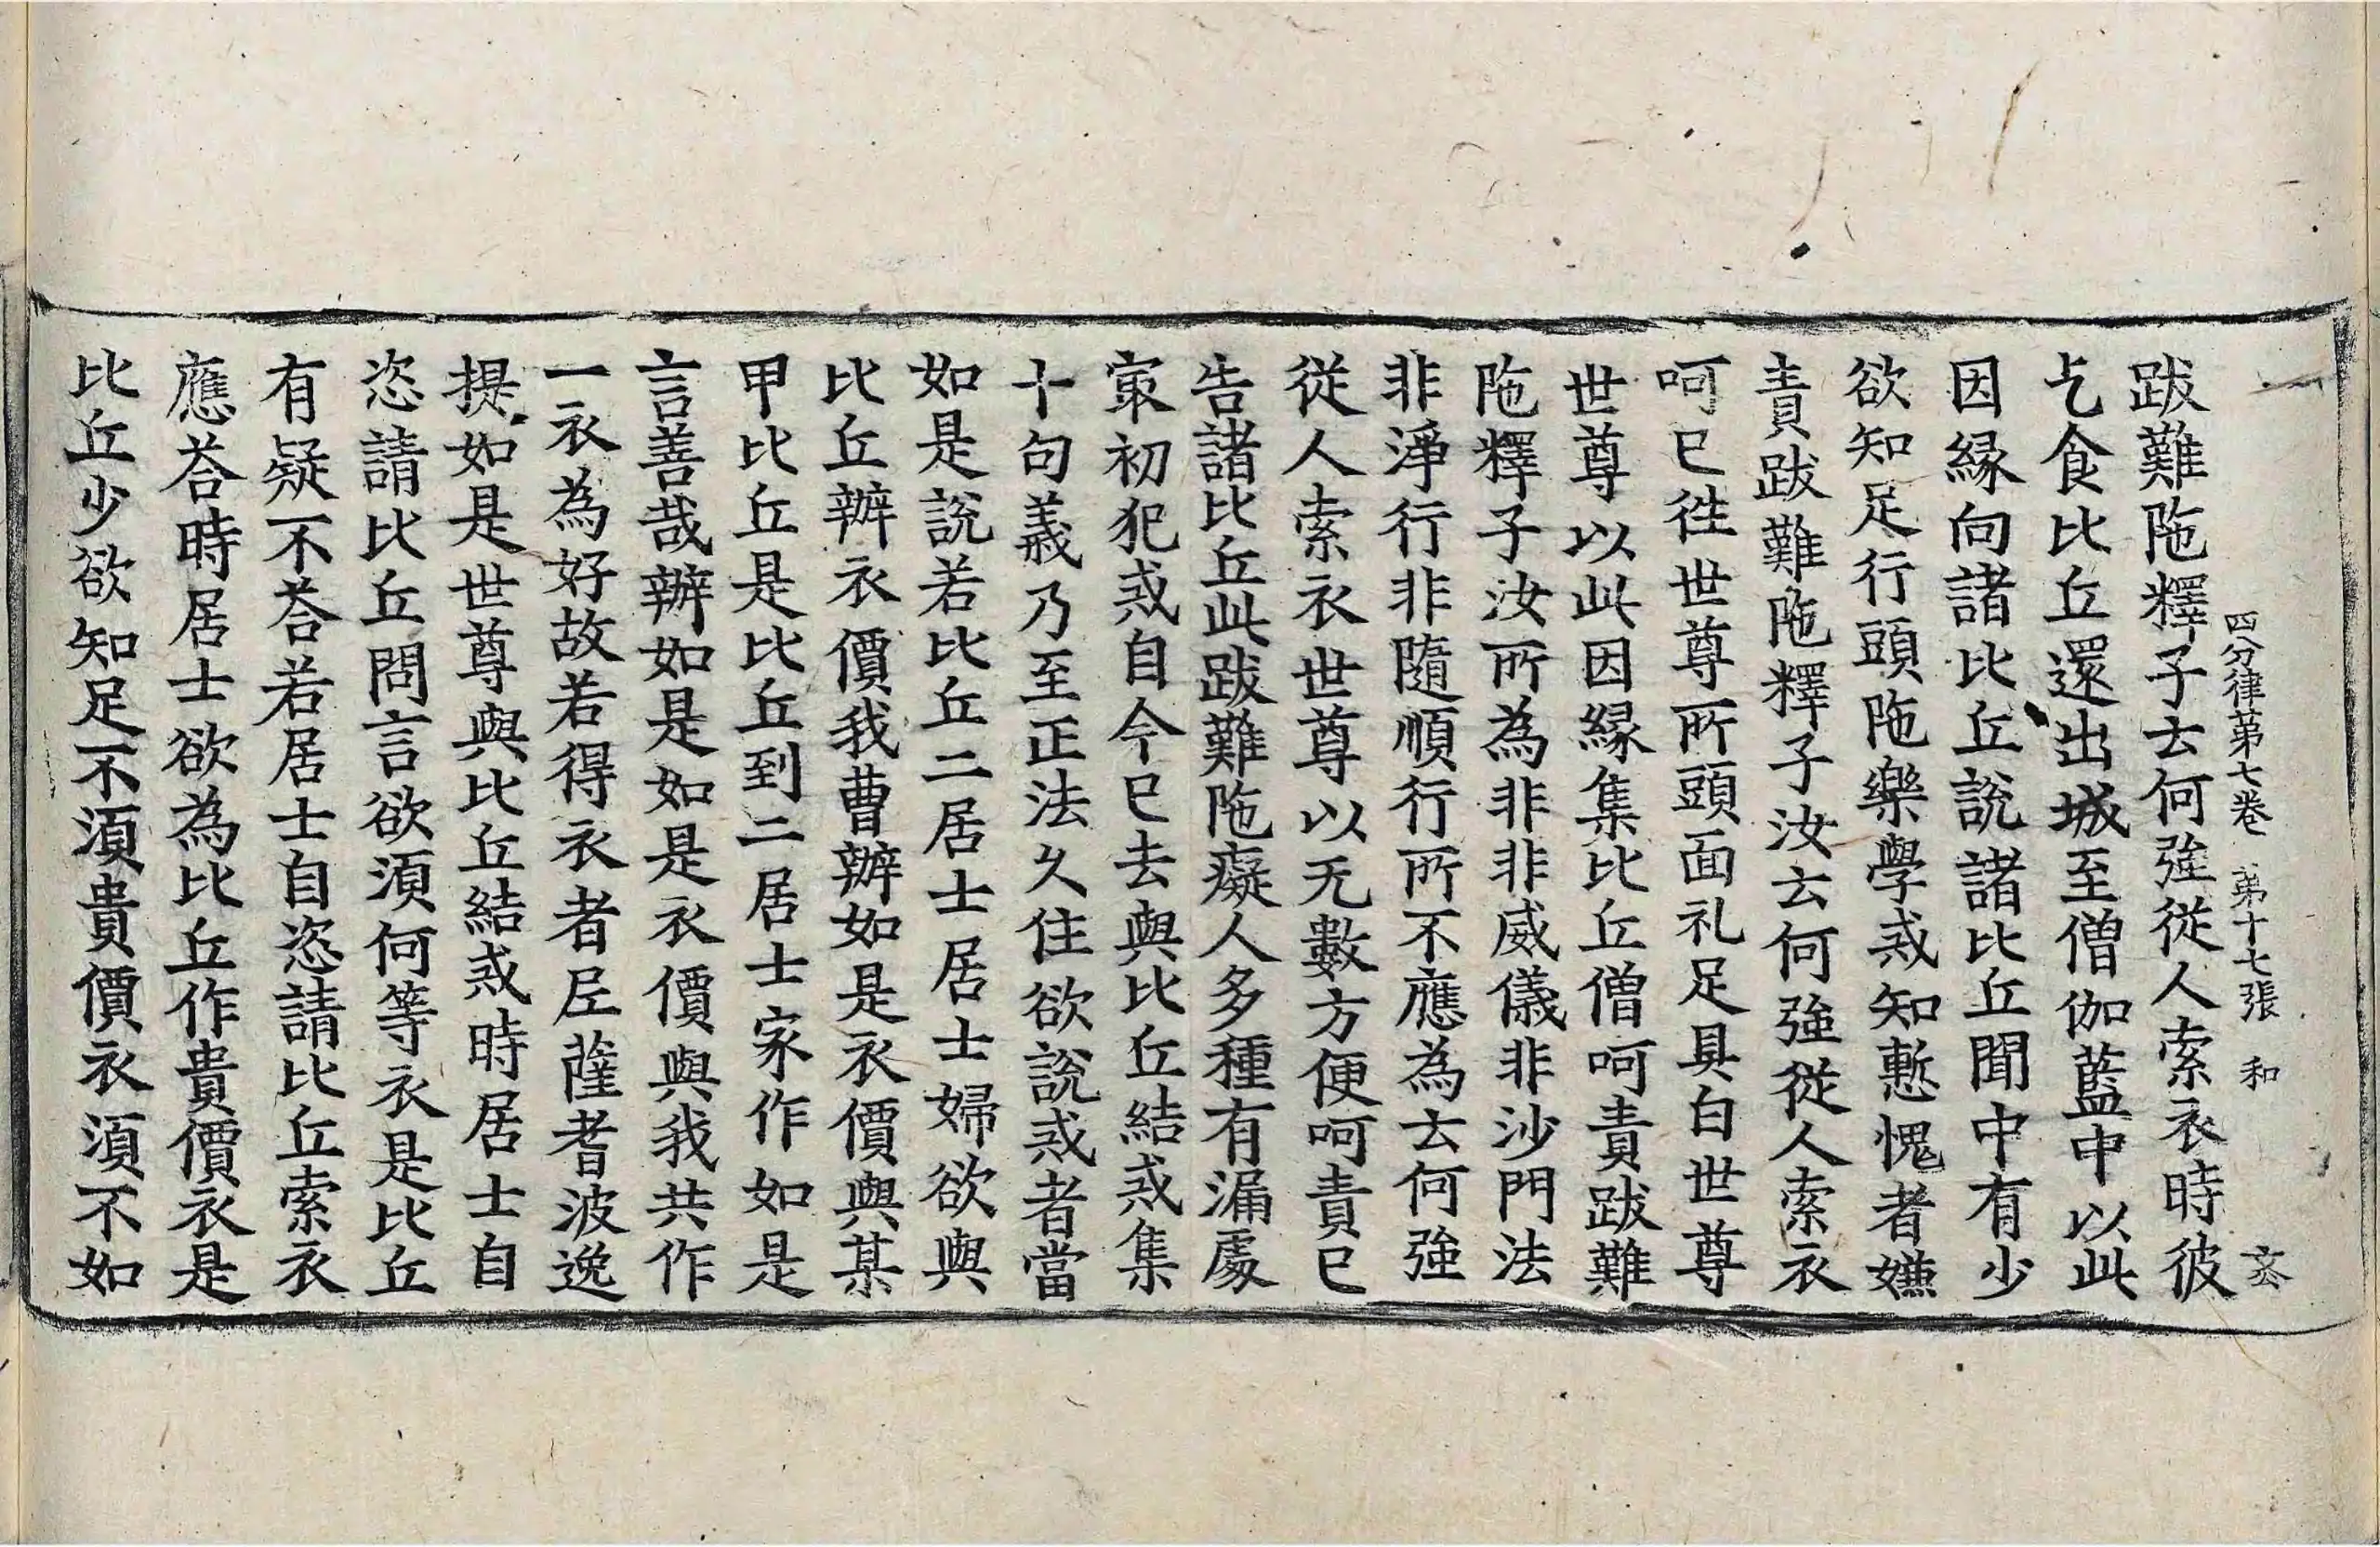 四分律苐七卷　苐十七張　和
跋難陁釋子云何強從人索衣時彼
乞食比丘還出城至僧伽藍中以此
因緣向諸比丘說諸比丘聞中有少
欲知足行頭陁樂學戒知慙愧者嫌
責跋難陁釋子汝云何強從人索衣
呵已徃世尊所頭面礼足具白世尊
世尊以此因緣集比丘僧呵責跋難
陁釋子汝所為非非威儀非沙門法
非淨行非隨順行所不應為云何強
從人索衣世尊以无數方便呵責已
告諸比丘此跋難陁癡人多種有漏處
㝡初犯戒自今已去與比丘結戒集
十句義乃至正法久住欲說戒者當
如是說若比丘二居士居士婦欲與
比丘辦衣價我曹辦如是衣價與某
甲比丘是比丘到二居士家作如是
言善哉辦如是如是衣價與我共作
一衣為好故若得衣者尼薩耆波逸
提如是世尊與比丘結戒時居士自
恣請比丘問言欲湏何等衣是比丘
有疑不荅若居士自恣請比丘索衣
應荅時居士欲為比丘作貴價衣是
比丘少欲知足不湏貴價衣湏不如